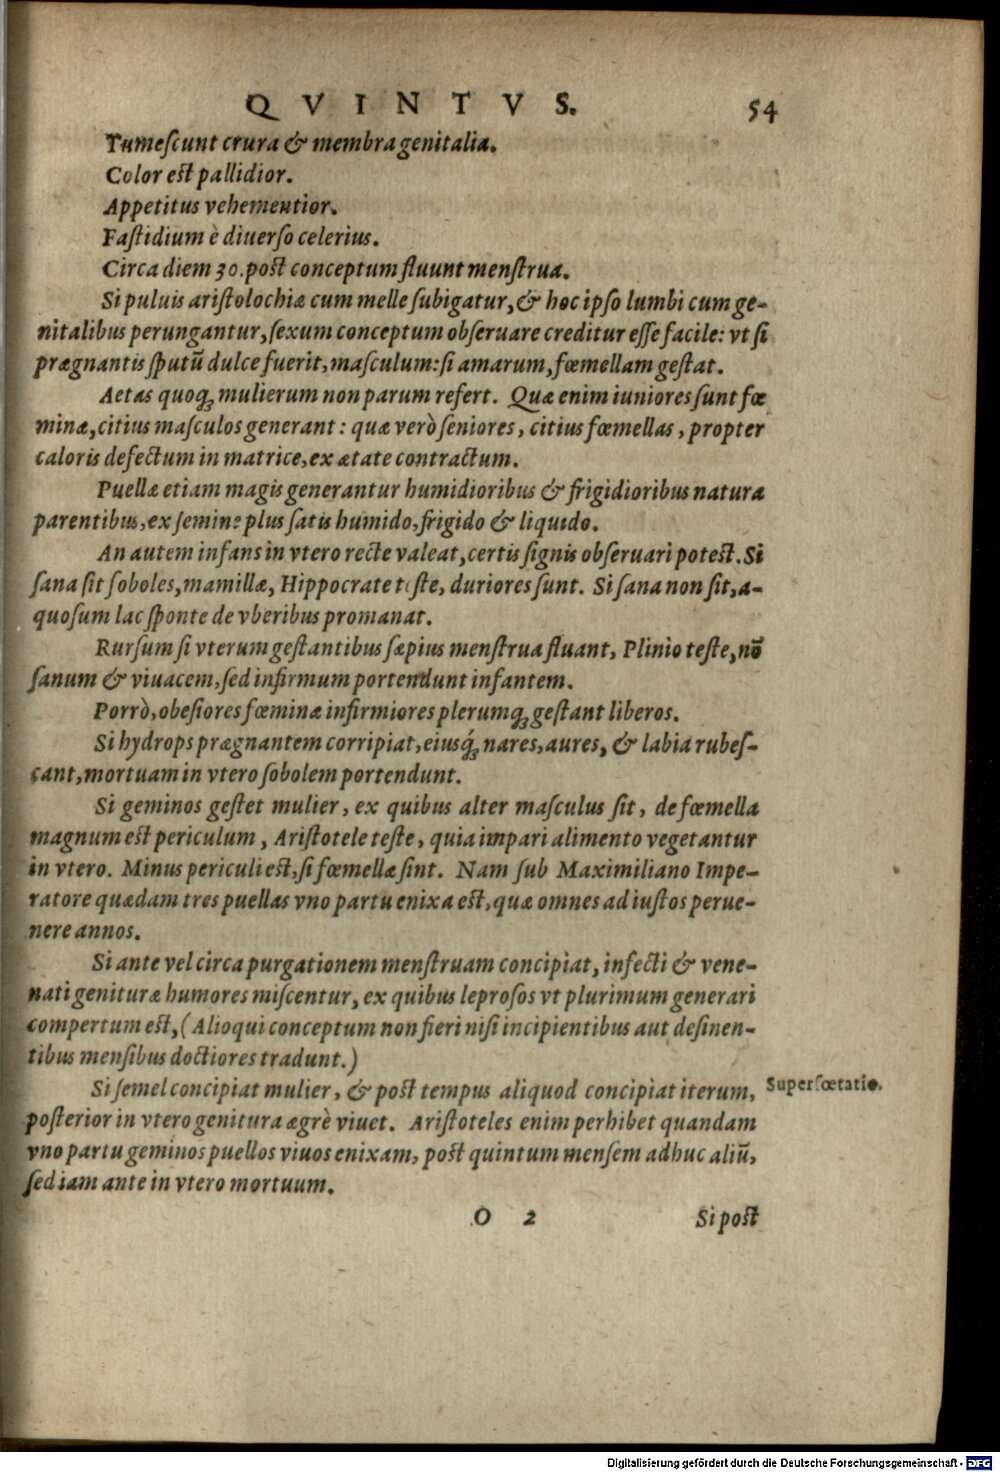 QVINTVS. 54
Tumeſcunt crura & membra genitalia.
Color eſt pallidior.
Appetitus vehementior.
Faſtidium è diuerſo celerius.
Circa diem 30. poſt conceptum fluunt menſtrua.
Si puluis ariſtolochiæ cum melle ſubigatur, & hoc ipſo lumbi cum ge-
nitalibus perungantur, ſexum conceptum obſeruare creditur eſſe facile: vt ſi
prægnantis ſputū dulce fuerit, maſculum: ſi amarum, fœmellam geſtat.
Aetas quoq; mulierum non parum refert. Quæ enim iuniores ſunt fœ
minæ, citius maſculos generant: quæ verò ſeniores, citius fœmellas, propter
caloris defectum in matrice, ex ætate contractum.
Puellæ etiam magis generantur humidioribus & frigidioribus natura
parentibus, ex ſemine plus ſatis humido, frigido & liquido.
An autem infans in vtero recte valeat, certis ſignis obſeruari poteſt. Si
ſana ſit ſoboles, mamillæ, Hippocrate teſte, duriores ſunt. Si ſana non ſit, a-
quoſum lac ſponte de vberibus promanat.
Rurſum ſi vterum geſtantibus ſæpius menſtrua fluant, Plinio teſte, nō
ſanum & viuacem, ſed infirmum portendunt infantem.
Porrò, obeſiores fœminæ infirmiores plerumq; geſtant liberos.
Si hydrops prægnantem corripiat, eiusq́; nares, aures, & labia rubeſ-
cant, mortuam in vtero ſobolem portendunt.
Si geminos geſtet mulier, ex quibus alter maſculus ſit, de fœmella
magnum eſt periculum, Ariſtotele teſte, quia impari alimento vegetantur
in vtero. Minus periculi eſt, ſi fœmellæ ſint. Nam ſub Maximiliano Impe-
ratore quædam tres puellas vno partu enixa eſt, quæ omnes ad iuſtos perue-
nere annos.
Si ante vel circa purgationem menſtruam concipiat, infecti & vene-
nati genituræ humores miſcentur, ex quibus leproſos vt plurimum generari
compertum eſt, (Alioqui conceptum non fieri niſi incipientibus aut deſinen-
tibus menſibus doctiores tradunt.)
Si ſemel concipiat mulier, & poſt tempus aliquod concipiat iterum, Superfœtatio.
poſterior in vtero genitura ægrè viuet. Ariſtoteles enim perhibet quandam
vno partu geminos puellos viuos enixam, poſt quintum menſem adhuc aliū,
ſed iam ante in vtero mortuum.
O 2 Si poſt
Digitalisierung gefördert durch die Deutsche Forschungsgemeinschaft - DFG